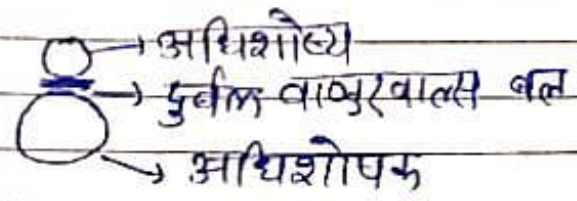 अधिशोष्य
दुर्बल वाण्डरवाल्स बल
अधिशोषक